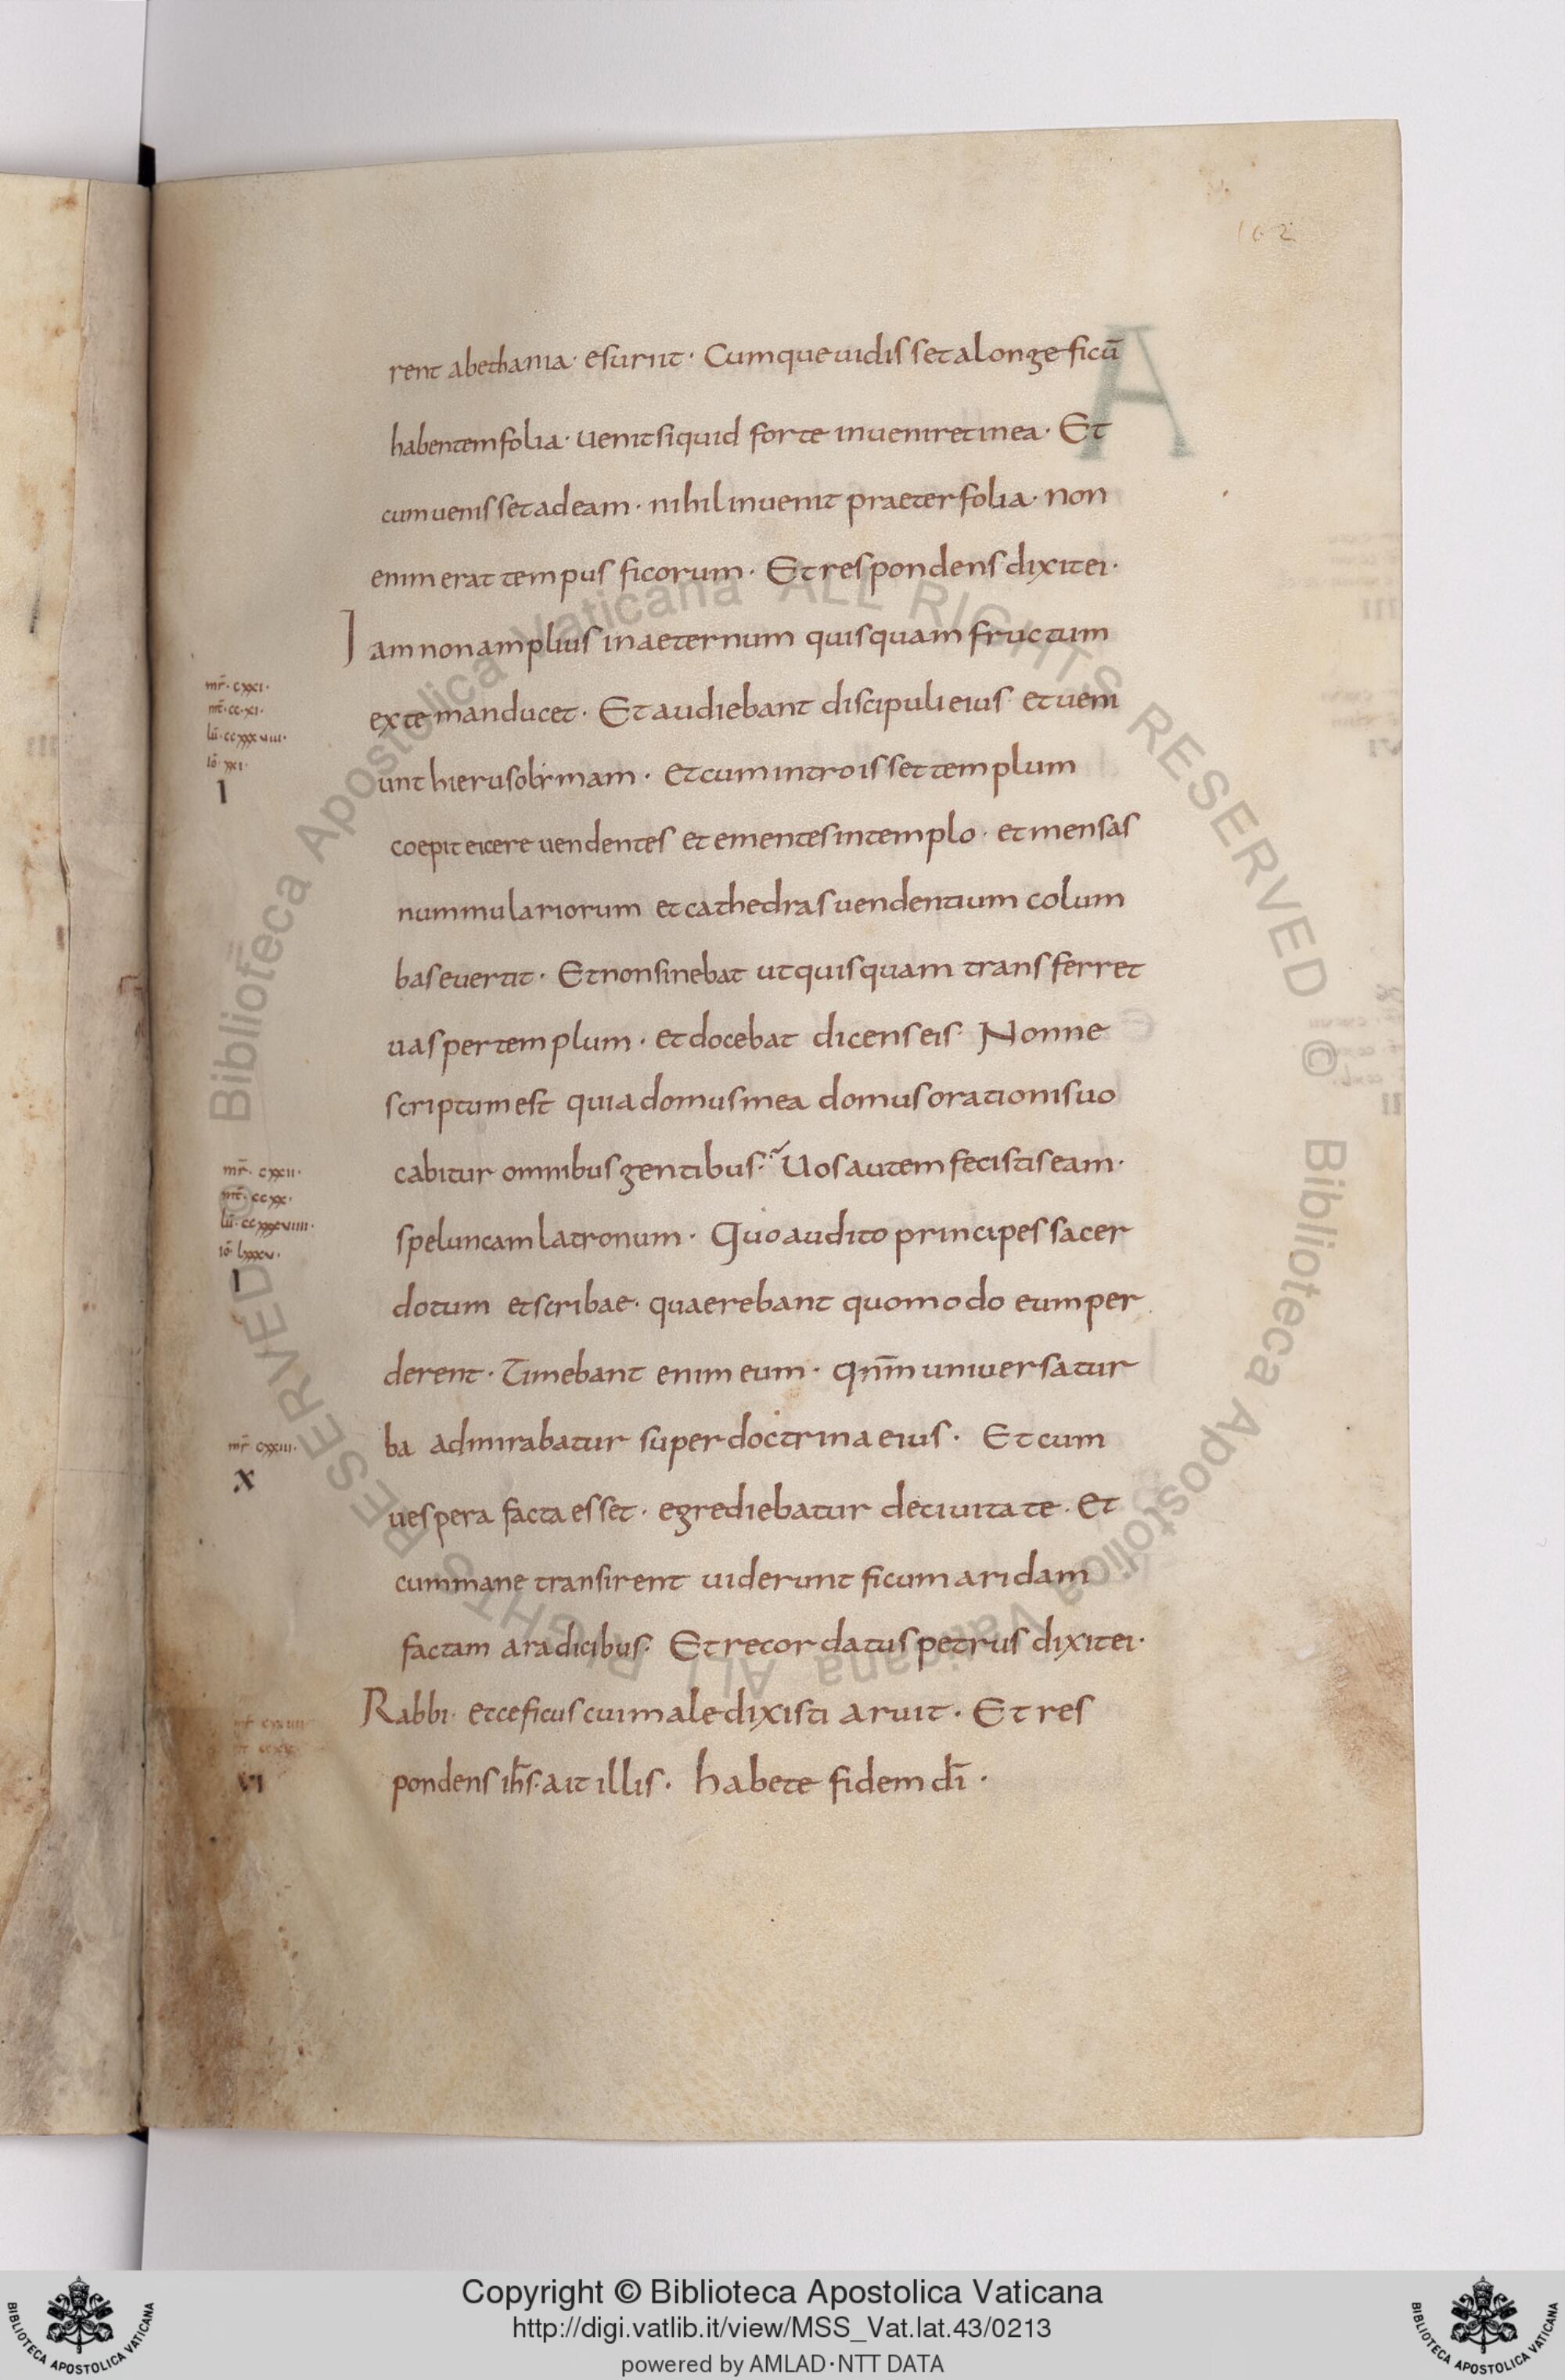 162
rent abethania· esuriit· Cumque uidisset alonge ficū
habentem folia· uenit siquid forte inueniret inea· Et
cum uenisset adeam· nihil inuenit praeter folia· non
enim erat tempus ficorum· Et respondens dixit ei·
Iam non amplius inaeternum quisquam fructum
ex te manducet· Et audiebant discipuli eius et ueni
mr̄· cxxi·
mt̄· cc·xi·
lū· ccxxxviii·
iō· xxi·
I
unt hierusolymam· et cum introisset templum
coepit eicere uendentes et ementes intemplo· et mensas
nummulariorum et cathedras uendentium colum
bas euertit· Et non sinebat ut quisquam transferret
uas per templum· et docebat dicens eis· Nonne
scriptum est quia domus mea domus orationis uo
cabitur omnibus gentibus· Uos autem fecistis eam·
mr̄· cxxii·
mt̄· ccxx·
lū· ccxxxviiii·
iō· lxxxv·
I
speluncam latronum· Quo audito principes sacer
dotum et scribae· quaerebant quomodo eum per
derent· Timebant enim eum· qnm̄ uniuersa tur
ba admirabatur super doctrina eius· Et cum
mr̄ cxxiii·
X
uespera facta esset· egrediebatur deciuitate· Et
cum mane transirent uiderunt ficum aridam
factam aradicibus· Et recordatus petrus dixit ei·
Rabbi· ecce ficus cui maledixisti aruit· Et res
VI
pondens ih̄s· ait illis· habete fidem dī·
Biblioteca Apostolica Vaticana ALL RIGHTS RESERVED ©
Biblioteca Apostolica Vaticana ALL RIGHTS RESERVED ©
Copyright © Biblioteca Apostolica Vaticana
http://digi.vatlib.it/view/MSS_Vat.lat.43/0213
powered by AMLAD·NTT DATA
BIBLIOTECA APOSTOLICA VATICANA
BIBLIOTECA APOSTOLICA VATICANA